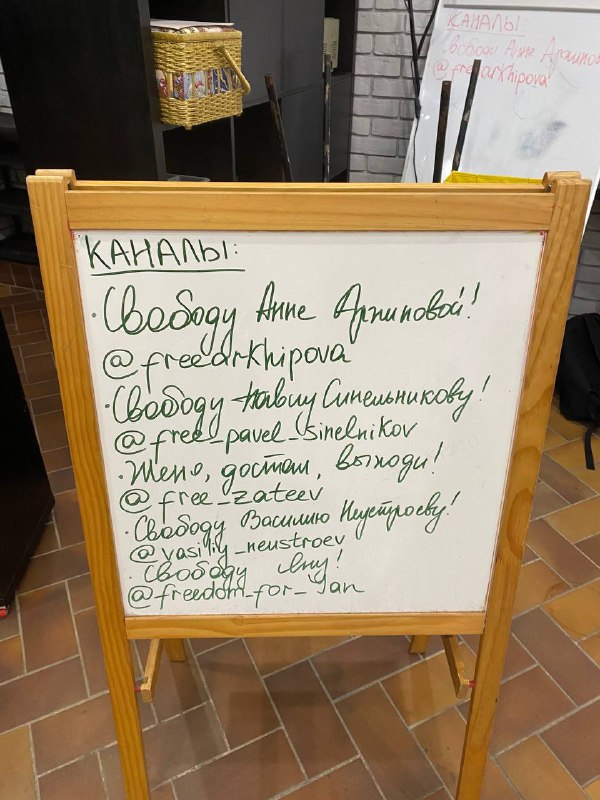 КАНАЛЫ:
· Свободу Анне Архиповой!
@freearkhipova
· Свободу Павлу Синельникову!
@free_pavel_sinelnikov
· Женя, достал, выходи!
@free_zateev
· Свободу Василию Неустроеву!
@vasiliy_neustroev
· Свободу Яну!
@freedom_for_Jan
КАНАЛЫ:
Свободу Анне Архипов
@freearkhipova